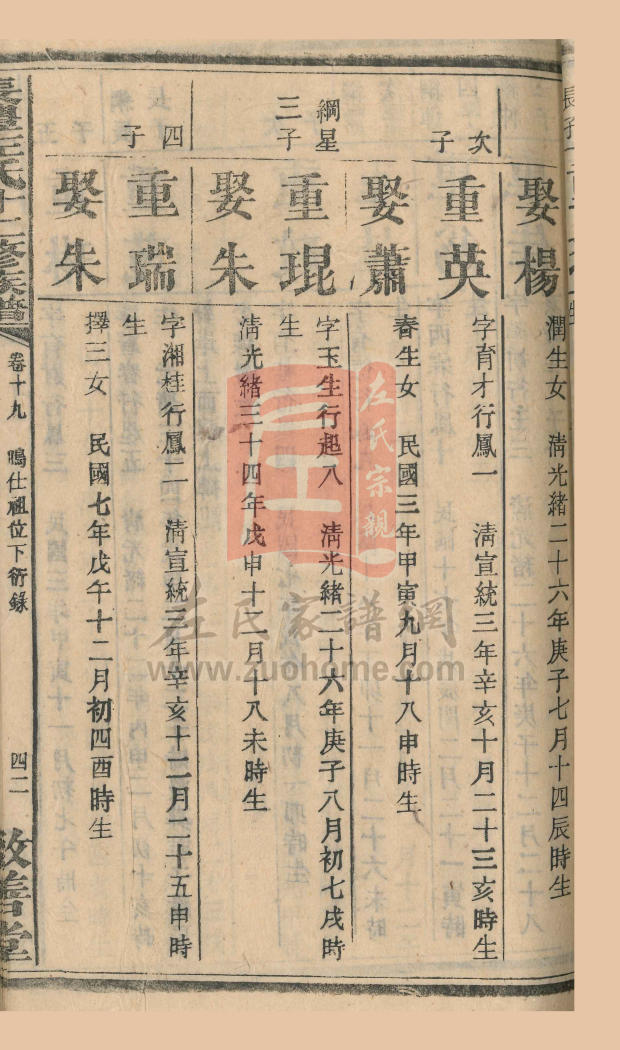 娶楊
潤生女 清光緒二十六年庚子七月十四辰時生
次子
重英
字育才行鳳一 清宣統三年辛亥十月二十三亥時生
娶蕭
春生女 民國三年甲寅九月十八申時生
綱星三子
重琨
字玉生行起八 清光緒二十六年庚子八月初七戌時
生
娶朱
清光緒三十四年戊申十二月十八未時生
四子
重瑞
字湘桂行鳳二 清宣統三年辛亥十二月二十五申時
生
娶朱
擇三女 民國七年戊午十二月初四酉時生
左氏十二修族譜
卷十九 鳴仕祖位下衍錄
四二
敦善堂
左氏宗親
左氏家譜網
www.zuohome.com